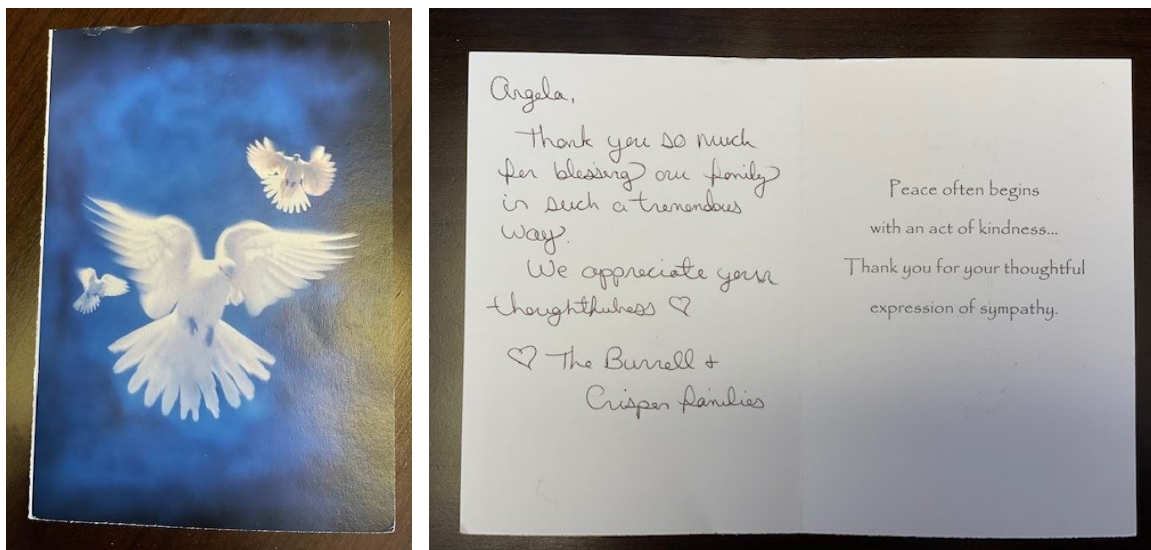 Angela,
Thank you so much
for blessing our family
in such a tremendous
way.
We appreciate your
thoughtfulness ♡
♡ The Burrell +
Crisper families
Peace often begins
with an act of kindness...
Thank you for your thoughtful
expression of sympathy.